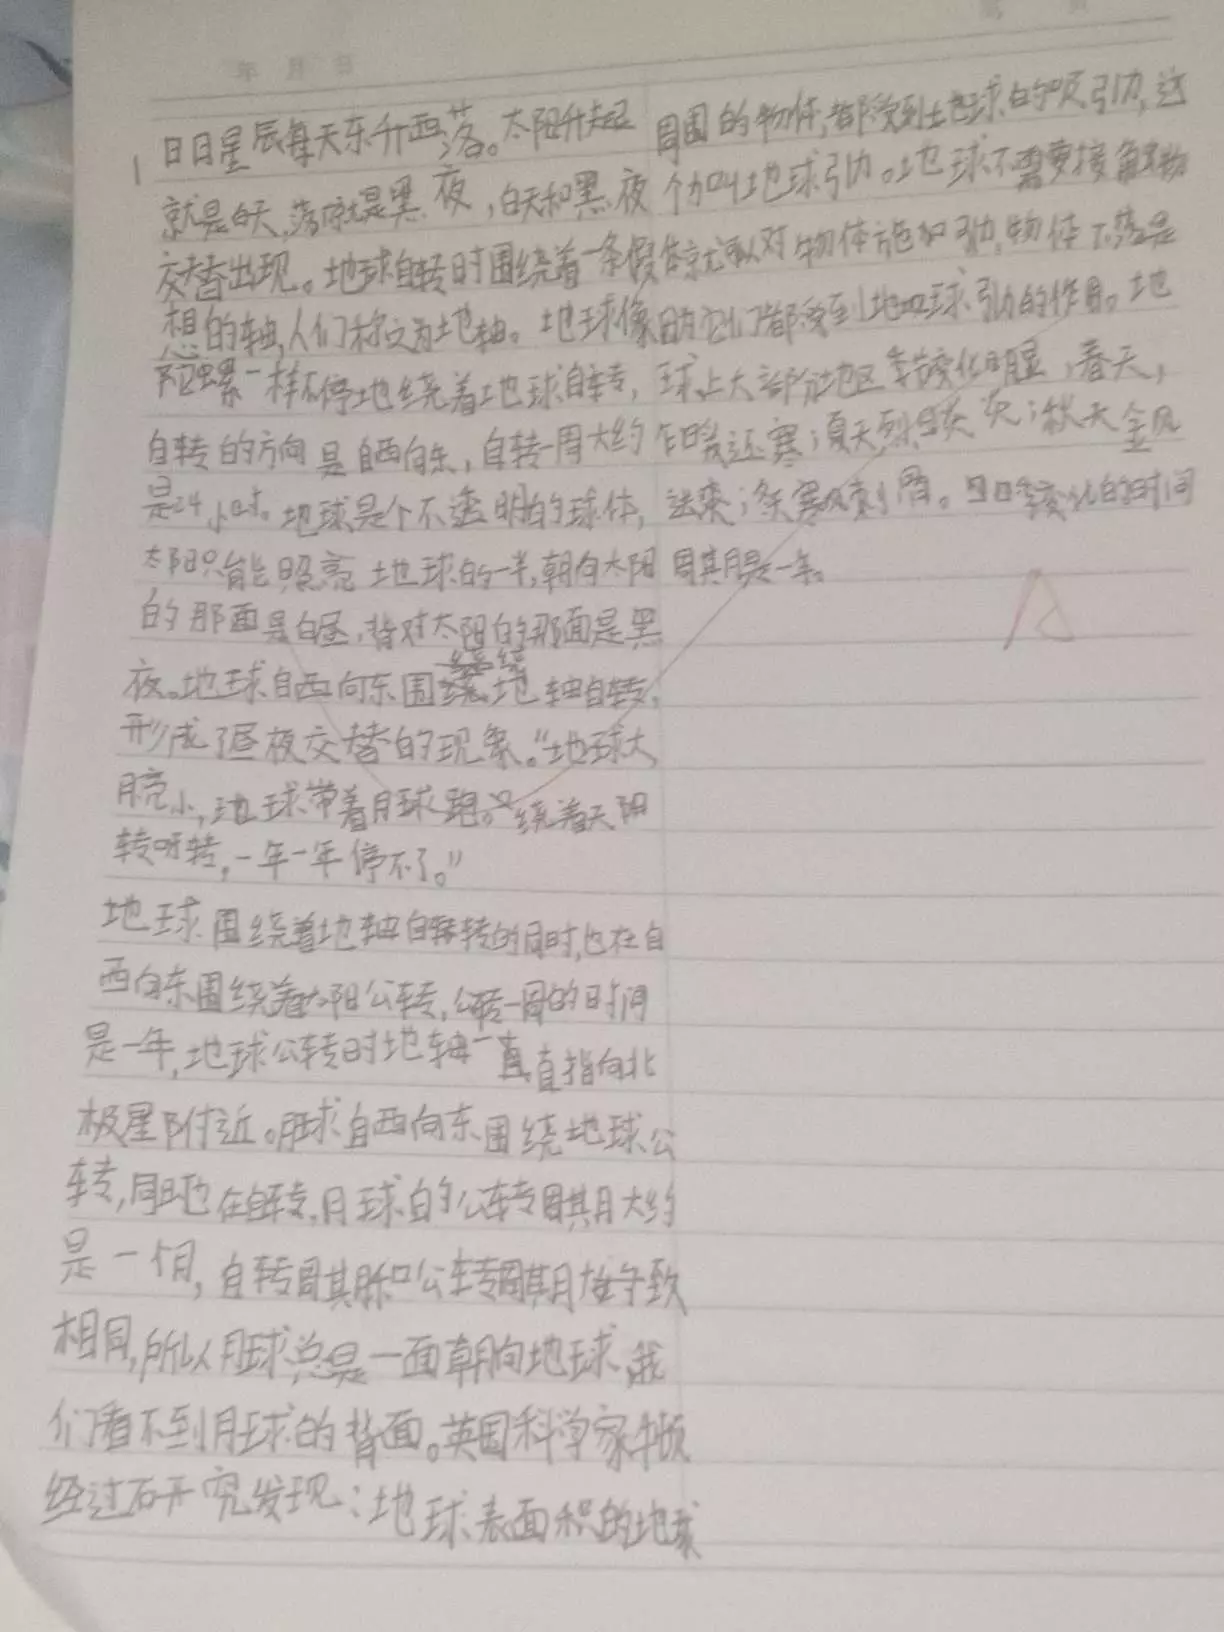 年 月 日
1 日月星辰每天东升西落。太阳升起
就是白天,落下就是黑夜,白天和黑夜
交替出现。地球自转时围绕着一条假
想的轴,人们称之为地轴。地球像
陀螺一样不停地绕着地球自转,
自转的方向是自西向东,自转一周大约
是24小时。地球是个不透明的球体,
太阳只能照亮地球的一半,朝向太阳
的那面是白昼,背对太阳的那面是黑
夜。地球自西向东围绕地轴自转,
形成了昼夜交替的现象。“地球大,
月亮小,地球带着月球跑。绕着太阳
转呀转,一年一年停不了。”
地球围绕着地轴自转的同时,也在自
西向东围绕着太阳公转,公转一周的时间
是一年,地球公转时地轴一直直指向北
极星附近。月球自西向东围绕地球公
转,同时也在自转,月球的公转周期大约
是一个月,自转周期和公转周期
相同,所以月球总是一面朝向地球,我
们看不到月球的背面。英国科学家牛顿
经过研究发现:地球表面和的地球
周围的物体,都受到地球的吸引力,这
个力叫地球引力。地球不需要接触物
体就可以对物体施加引力,物体下落是
因为它们都受到地球引力的作用。地
球上大部分地区季节变化明显,春天,
乍暖还寒;夏天,烈日炎炎;秋天金风
送爽;冬寒风刺骨。四季变化的时间
周期是一年。